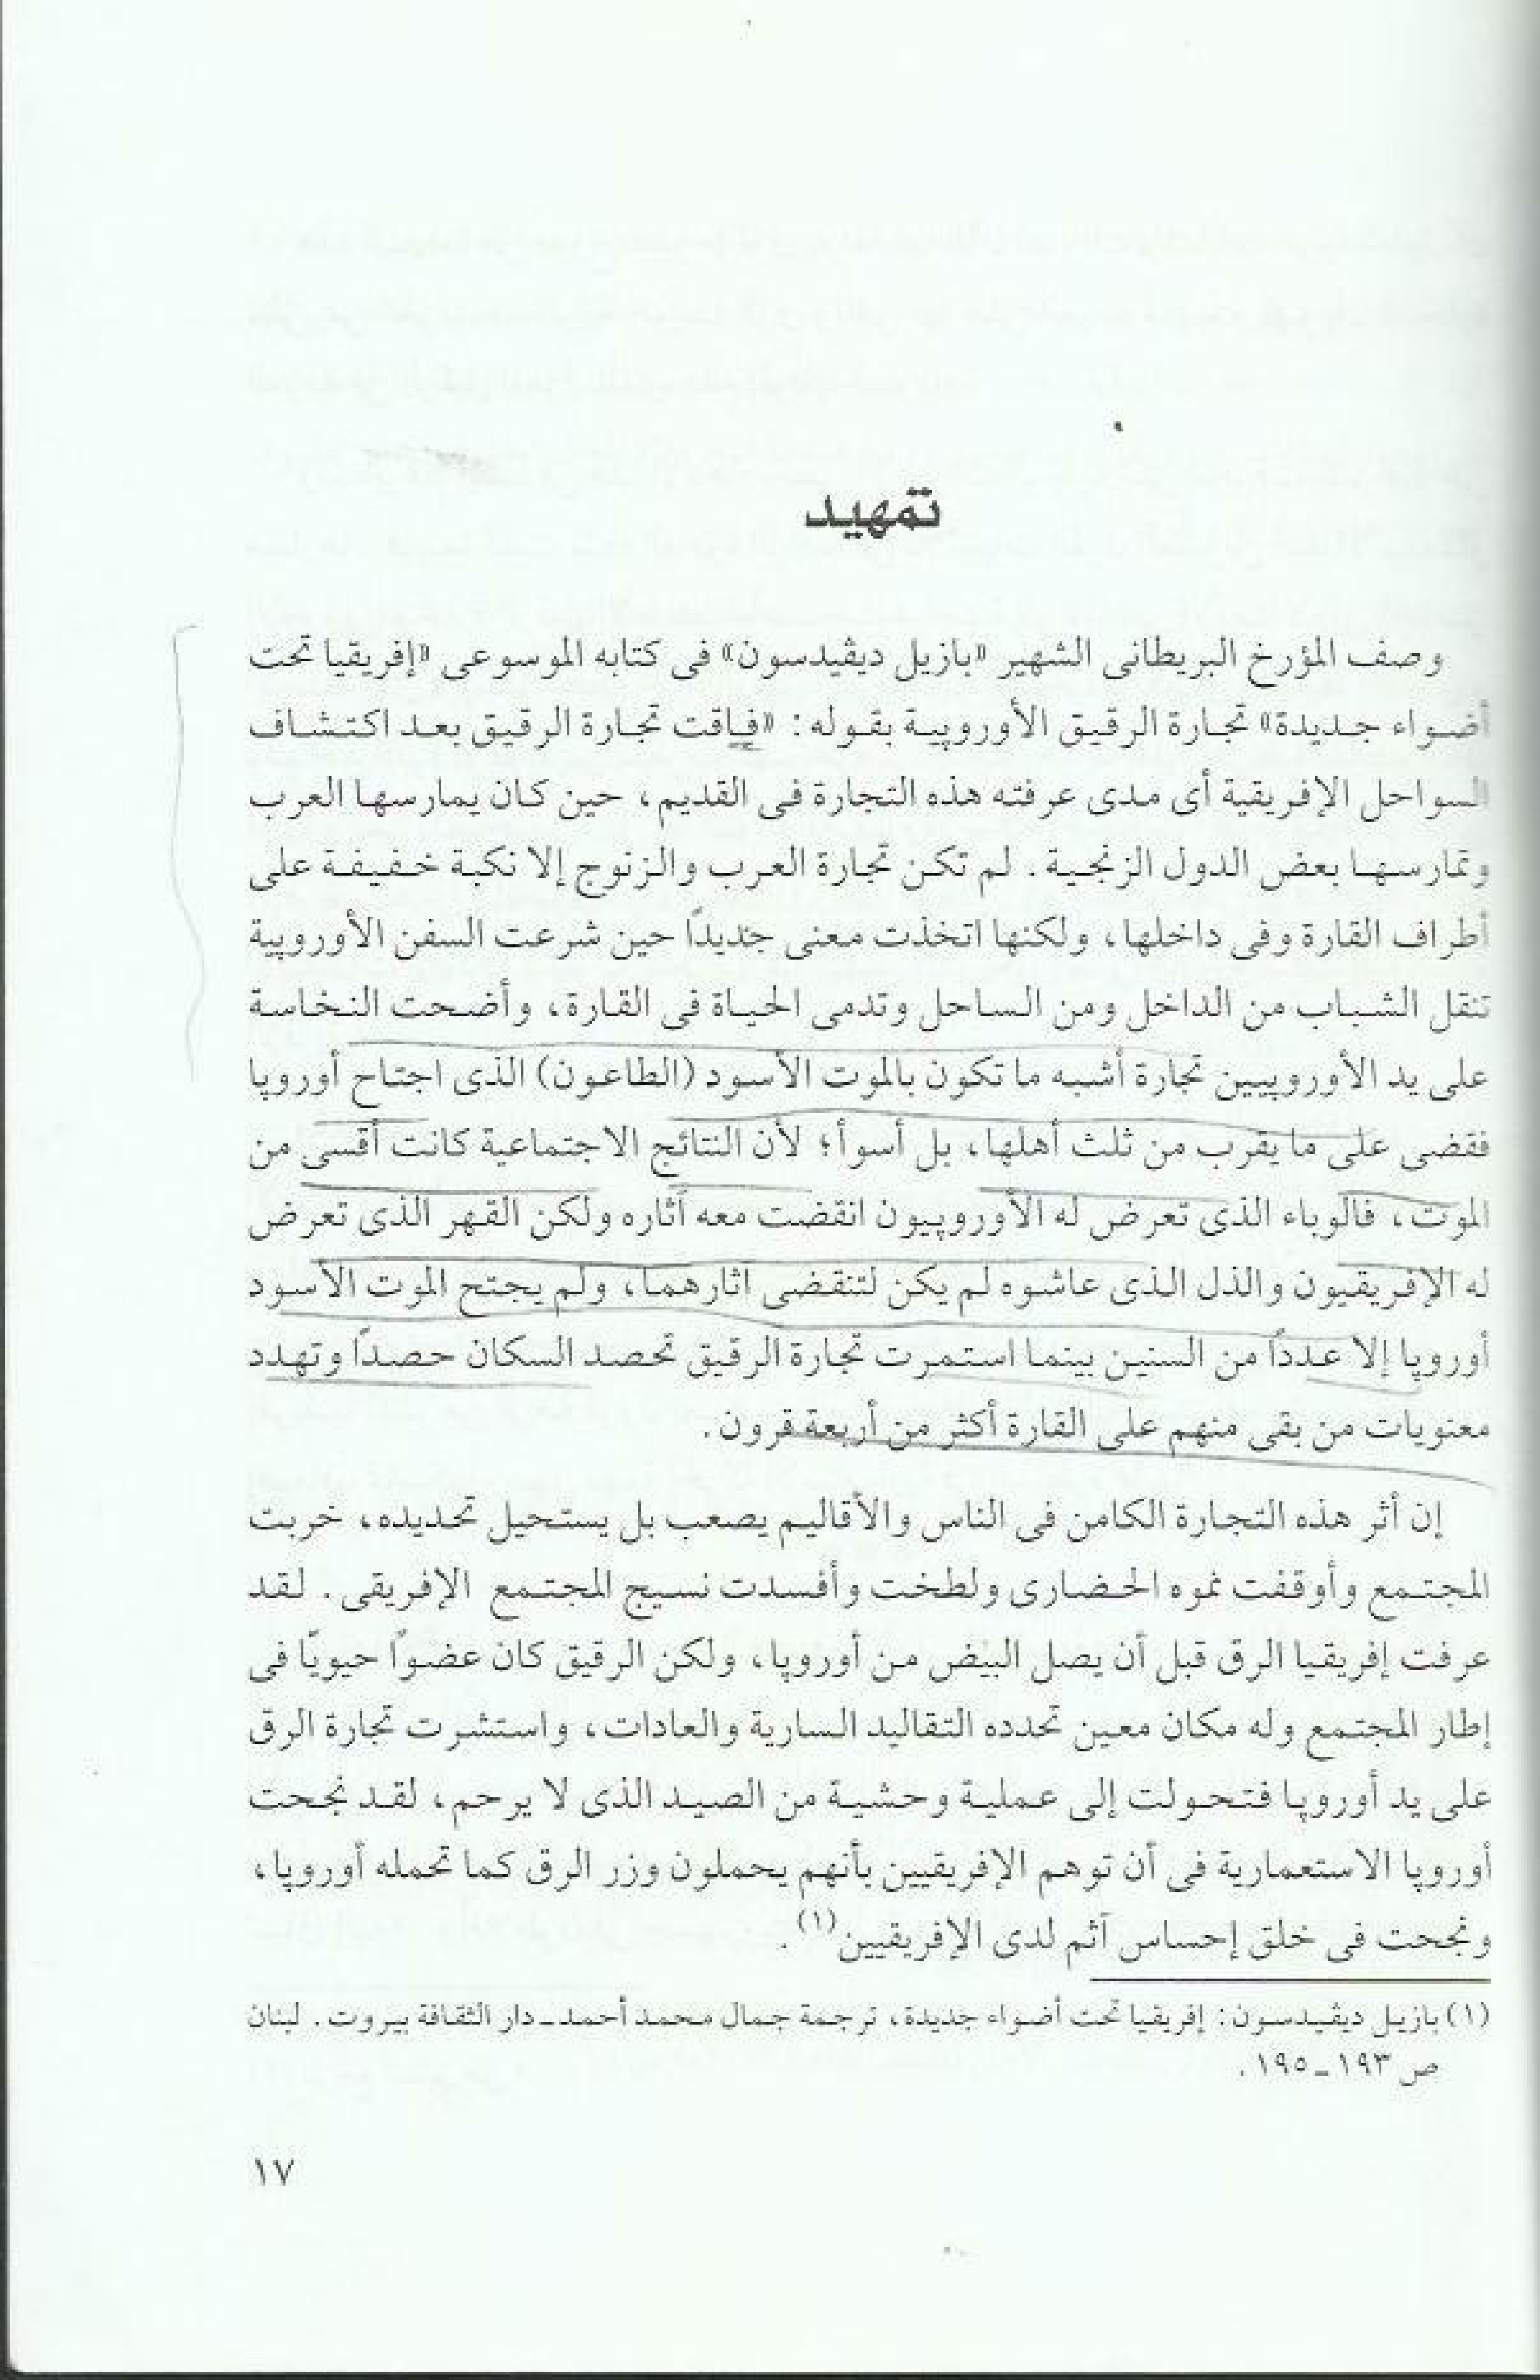 تمهيد
وصف المؤرخ البريطانى الشهير «بازيل ديڤيدسون» فى كتابه الموسوعى «إفريقيا تحت
أضواء جديدة» تجارة الرقيق الأوروبية بقوله: «فاقت تجارة الرقيق بعد اكتشاف
السواحل الإفريقية أى مدى عرفته هذه التجارة فى القديم، حين كان يمارسها العرب
وتمارسها بعض الدول الزنجية. لم تكن تجارة العرب والزنوج إلا نكبة خفيفة على
أطراف القارة وفى داخلها، ولكنها اتخذت معنى جديدًا حين شرعت السفن الأوروبية
تنقل الشباب من الداخل ومن الساحل وتدمى الحياة فى القارة، وأضحت النخاسة
على يد الأوروبيين تجارة أشبه ما تكون بالموت الأسود (الطاعون) الذى اجتاح أوروبا
فقضى على ما يقرب من ثلث أهلها، بل أسوأ؛ لأن النتائج الاجتماعية كانت أقسى من
الموت، فالوباء الذى تعرض له الأوروبيون انقضت معه آثاره ولكن القهر الذى تعرض
له الإفريقيون والذل الذى عاشوه لم يكن لتنقضى آثارهما، ولم يجتح الموت الأسود
أوروبا إلا عددًا من السنين بينما استمرت تجارة الرقيق تحصد السكان حصدًا وتهدد
معنويات من بقى منهم على القارة أكثر من أربعة قرون.
إن أثر هذه التجارة الكامن فى الناس والأقاليم يصعب بل يستحيل تحديده، خربت
المجتمع وأوقفت نموه الحضارى ولطخت وأفسدت نسيج المجتمع الإفريقى. لقد
عرفت إفريقيا الرق قبل أن يصل البيض من أوروبا، ولكن الرقيق كان عضوًا حيويًا فى
إطار المجتمع وله مكان معين تحدده التقاليد السارية والعادات، واستشرت تجارة الرق
على يد أوروبا فتحولت إلى عملية وحشية من الصيد الذى لا يرحم، لقد نجحت
أوروبا الاستعمارية فى أن توهم الإفريقيين بأنهم يحملون وزر الرق كما تحمله أوروبا،
ونجحت فى خلق إحساس آثم لدى الإفريقيين(١).
(١) بازيل ديڤيدسون: إفريقيا تحت أضواء جديدة، ترجمة جمال محمد أحمد ـ دار الثقافة بيروت. لبنان
ص ١٩٣ـ١٩٥.
١٧